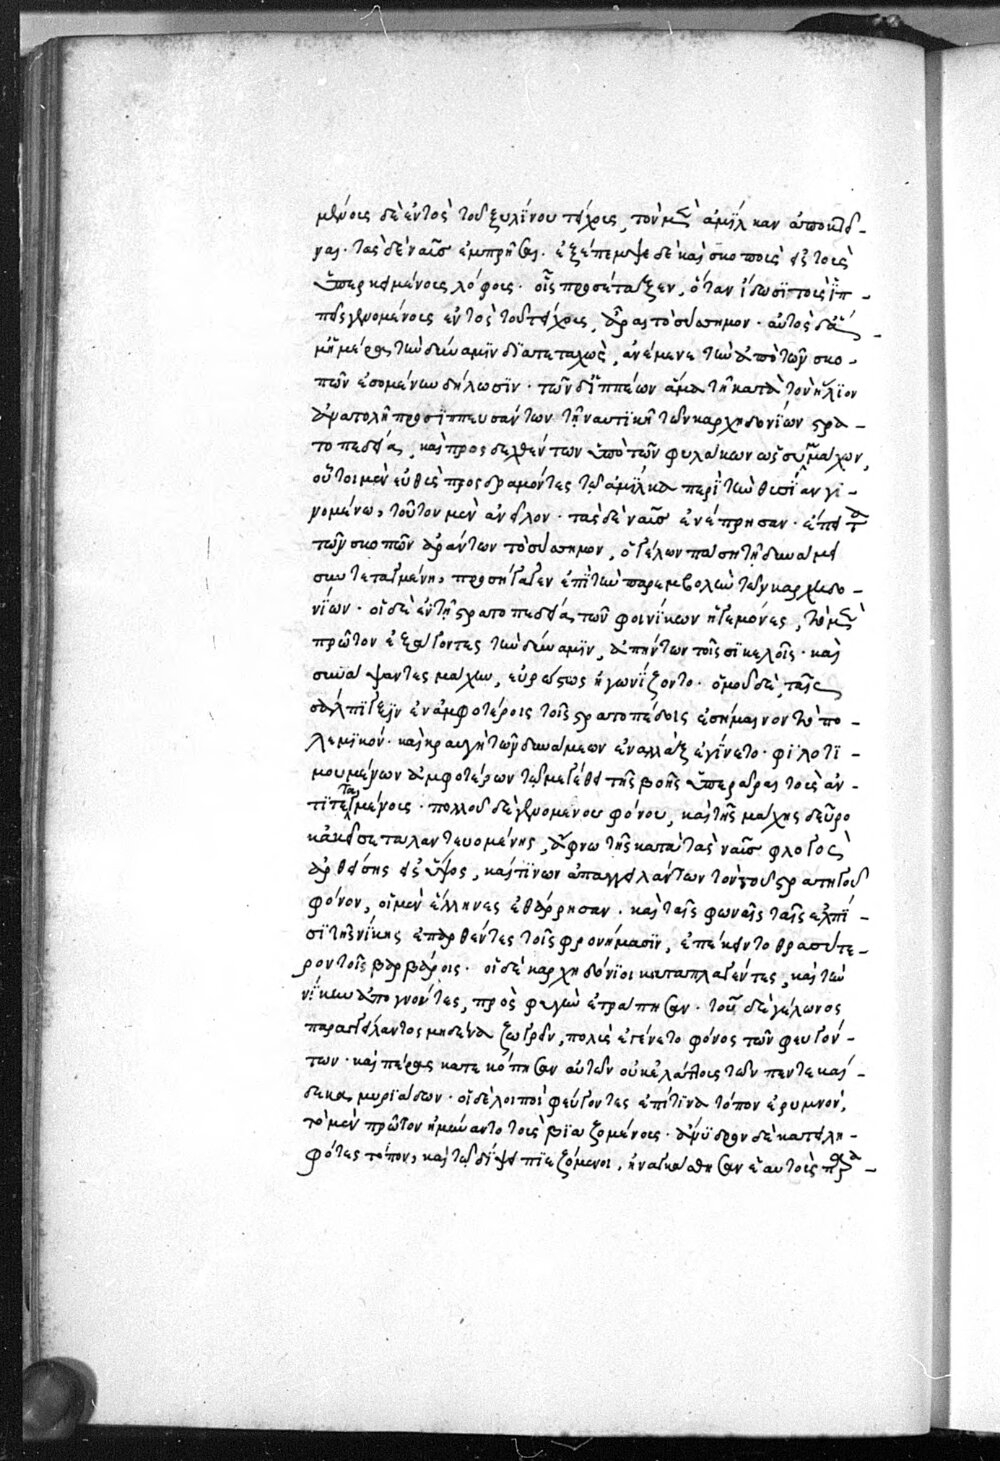 μένοις δὲ ἐντὸς τοῦ ξυλίνου τείχους, τὸν μὲν ἀμίλκαν ἀποκτεῖ-
ναι· τὰς δὲ ναῦς ἐμπρῆσαι. ἐξέπεμψε δὲ καὶ σκοποὺς εἰς τοὺς
ὑπερκειμένους λόφους· οἷς προσέταξεν, ὅταν ἴδωσι τοὺς ἱπ-
πεῖς γενομένους ἐντὸς τοῦ τείχους, ἆραι τὸ σύσσημον· αὐτὸς δ' ἅ-
μ' ἡμέρᾳ τὴν δύναμιν διαπεταχὼς, ἀνέμενε τὴν ἀπὸ τῶν σκο-
πῶν ἐσομένην δήλωσιν· τῶν δ' ἱππέων ἅμα τῇ κατὰ τὸν ἥλιον
ἀνατολῇ προσϊππευσάντων τῇ ναυτικῇ τῶν καρχηδονίων στρα-
τοπεδείᾳ, καὶ προσδεχθέντων ὑπὸ τῶν φυλάκων ὡς συμμάχων,
οὗτοι μὲν εὐθὺς προσδραμόντες τῷ ἀμίλκᾳ περὶ τὴν θυσίαν γι-
νομένῳ, τοῦτον μὲν ἀνεῖλον· τὰς δὲ ναῦς ἐνέπρησαν· ἔπειτα
τῶν σκοπῶν ἀράντων τὸ σύσσημον, ὁ γέλων πάσῃ τῇ δυνάμει
συντεταγμένῃ, προσήγαγεν ἐπὶ τὴν παρεμβολὴν τῶν καρχηδο-
νίων· οἱ δὲ ἐν τῇ στρατοπεδείᾳ τῶν φοινίκων ἡγεμόνες, τὸ μὲν
πρῶτον ἐξαγαγόντες τὴν δύναμιν, ἀπήντων τοῖς σικελοῖς· καὶ
συνάψαντες μάχην, εὐρώστως ἠγωνίζοντο· ὁμοῦ δὲ, ταῖς
σάλπιγξιν ἐν ἀμφοτέροις τοῖς στρατοπέδοις ἐσήμαινον τὸ πο-
λεμικόν· καὶ κραυγὴ τῶν δυνάμεων ἐναλλὰξ ἐγίνετο· φιλοτι-
μουμένων ἀμφοτέρων τῷ μεγέθει τῆς βοῆς ὑπερᾶραι τοὺς ἀν-
τιτεταγμένους· πολλοῦ δὲ γενομένου φόνου, καὶ τῆς μάχης δεῦρο
κἀκεῖσε ταλαντευομένης, ἄφνω τῆς κατὰ τὰς ναῦς φλογὸς
ἀρθείσης εἰς ὕψος, καὶ τίνων ἀπαγγειλάντων τὸν τοῦ στρατηγοῦ
φόνον, οἱ μὲν ἕλληνες ἐθάρρησαν· καὶ ταῖς φωναῖς ταῖς ἐλπί-
σι τῆς νίκης ἐπαρθέντες τοῖς φρονήμασιν, ἐπέκειντο θρασύτε-
ρον τοῖς βαρβάροις· οἱ δὲ καρχηδόνιοι καταπλαγέντες, καὶ τὴν
νίκην ἀπογνόντες, πρὸς φυγὴν ἐτράπησαν· τοῦ δὲ γέλωνος
παραγγείλαντος μηδένα ζωγρεῖν, πολὺς ἐγένετο φόνος τῶν φευγόν-
των· καὶ πέρας κατεκόπησαν αὐτῶν οὐκ ἐλάττους τῶν πεντεκαί-
δεκα μυριάδων· οἱ δὲ λοιποὶ φεύγοντες ἐπί τινα τόπον ἐρυμνόν,
τὸ μὲν πρῶτον ἠμύναντο τοὺς βιαζομένους· ἄνυδρον δὲ κατειλη-
φότες τόπον, καὶ τῷ δίψει πιεζόμενοι, ἠναγκάσθησαν ἑαυτοὺς παρα-